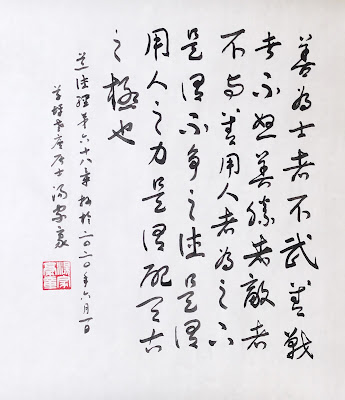 善為士者不武善戰
者不怒善勝者敵者
不與善用人者為之下
是謂不爭之德是謂
用人之力是謂配天古
之極也
道德經第六十八章 於二〇二〇年六月一日
居士湯家豪